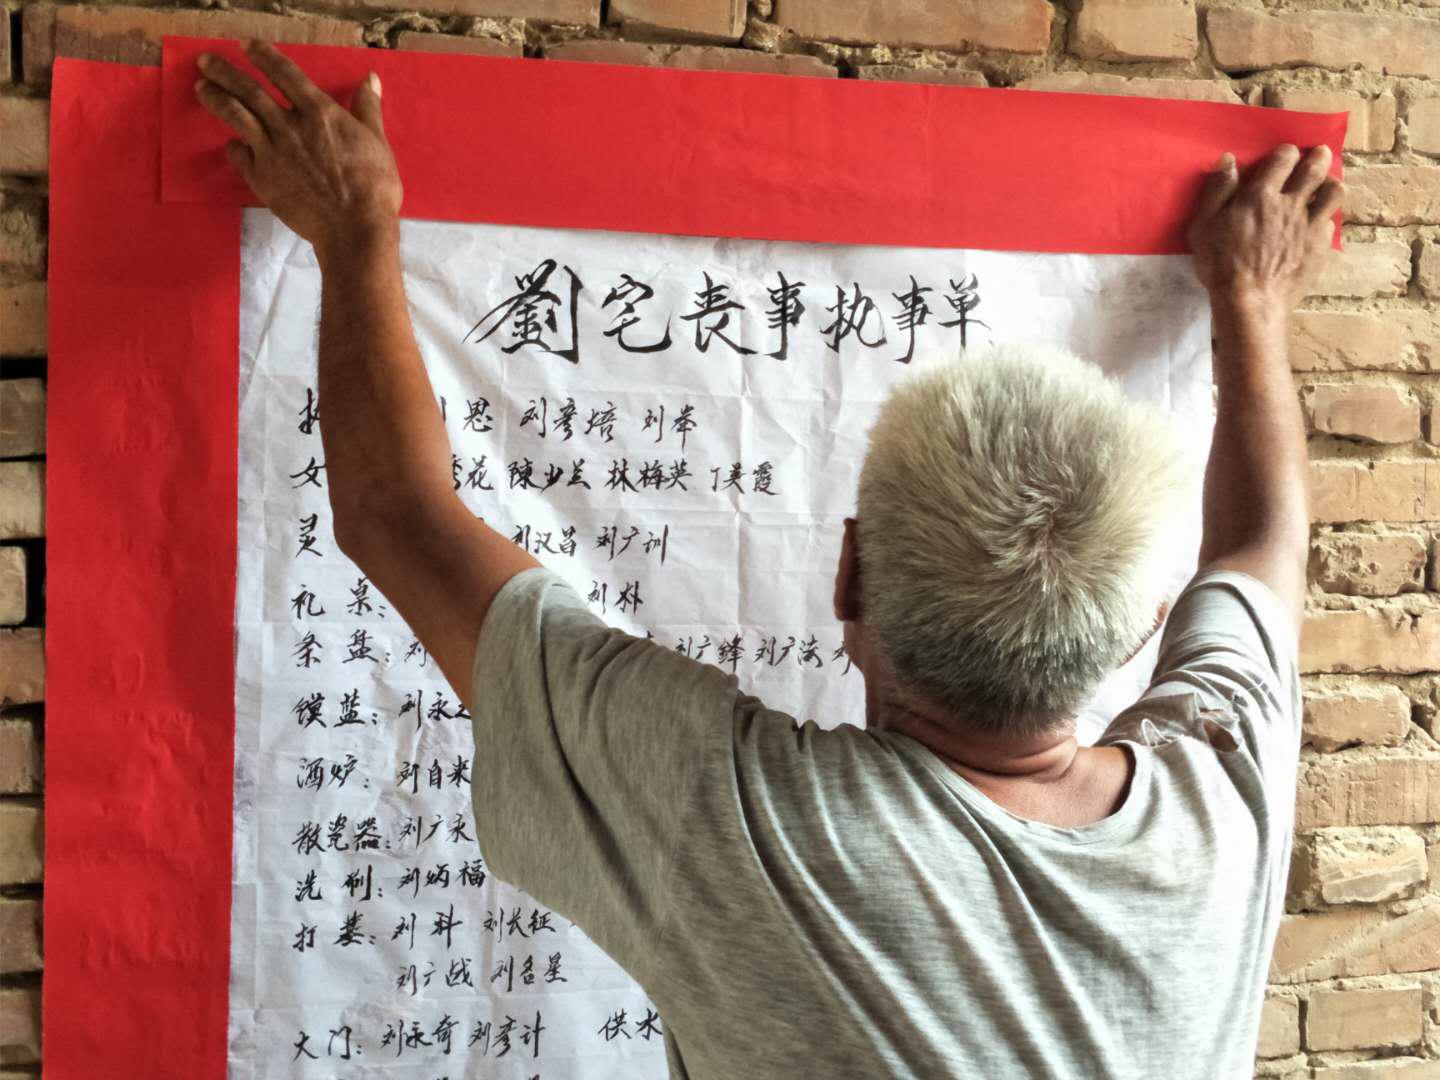 劉宅丧事执事单
恩 刘彦焙 刘举
女 花 陳少兰 林梅英 丁美霞
灵 刘汉昌 刘广训
礼 桌： 刘朴
条 盘：刘 刘广锋 刘广海
馍 蓝：刘永
酒炉：刘自来
散瓷器：刘广永
洗 刷：刘炳福
打 墓：刘科 刘长征
刘广战 刘名星
大门：刘永奇 刘彦计 供水